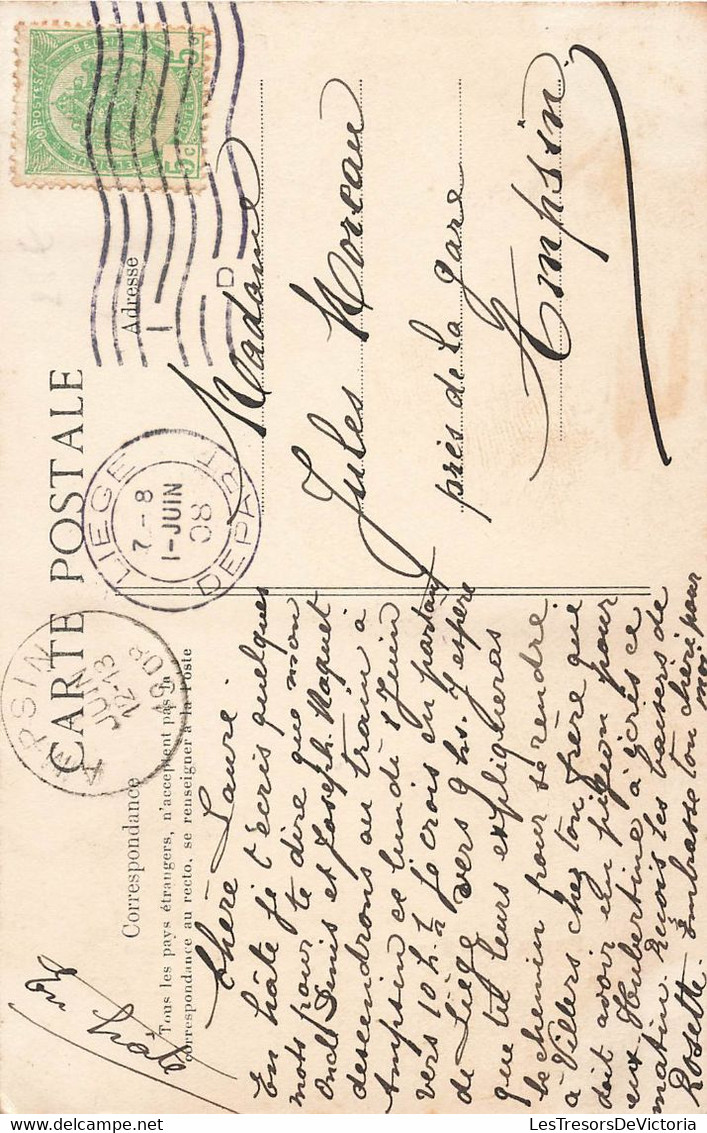 CARTE POSTALE
Correspondance
Adresse
Tous les pays étrangers, n'acceptent pas la
correspondance au recto, se renseigner à la Poste
En hâte
Chère Laure
En hâte je t'ecris quelques
mots pour te dire que mon
Oncle Denis et Joseph Naquet
descendrons au train à
Ampsin ce lundi 1 Juin
vers 10 h. ½ Je crois en partant
de Liége vers 9 hs. J'espère
que tu leurs expligueras
le chemin pour se rendre
à Villers chez ton frère que
doit avoir un pigeon pour
eux. Hubertine à écris ce
matin. Reçois les baisers de
Rosette. Embrasse ton chéri pour
moi
Madame
Jules Moreau
près de la gare
Ampsin
LIEGE
7-8
1-JUIN
08
DEPART
AMPSIN
JUIN
12-13
1908
POSTES
BELGIQUE
5 c
5 c
LesTresorsDeVictoria.com